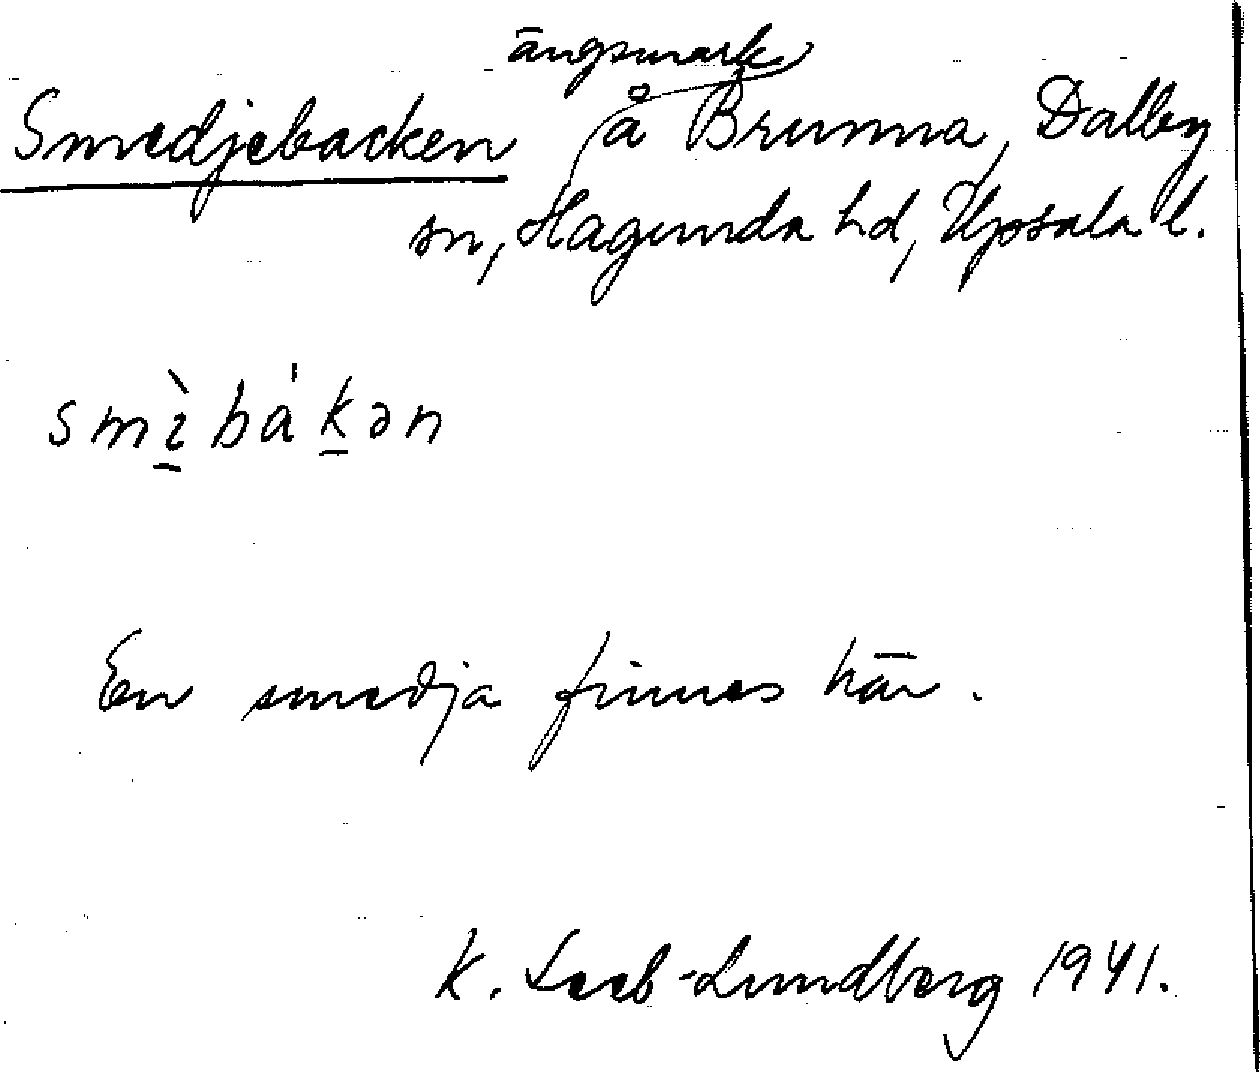 Smedjebacken ängsmark å Brunna, Dalby
sn, Hagunda hd, Upsala l.
smìbákən
En smedja finnes här.
K. Leeb-Lundberg 1941.